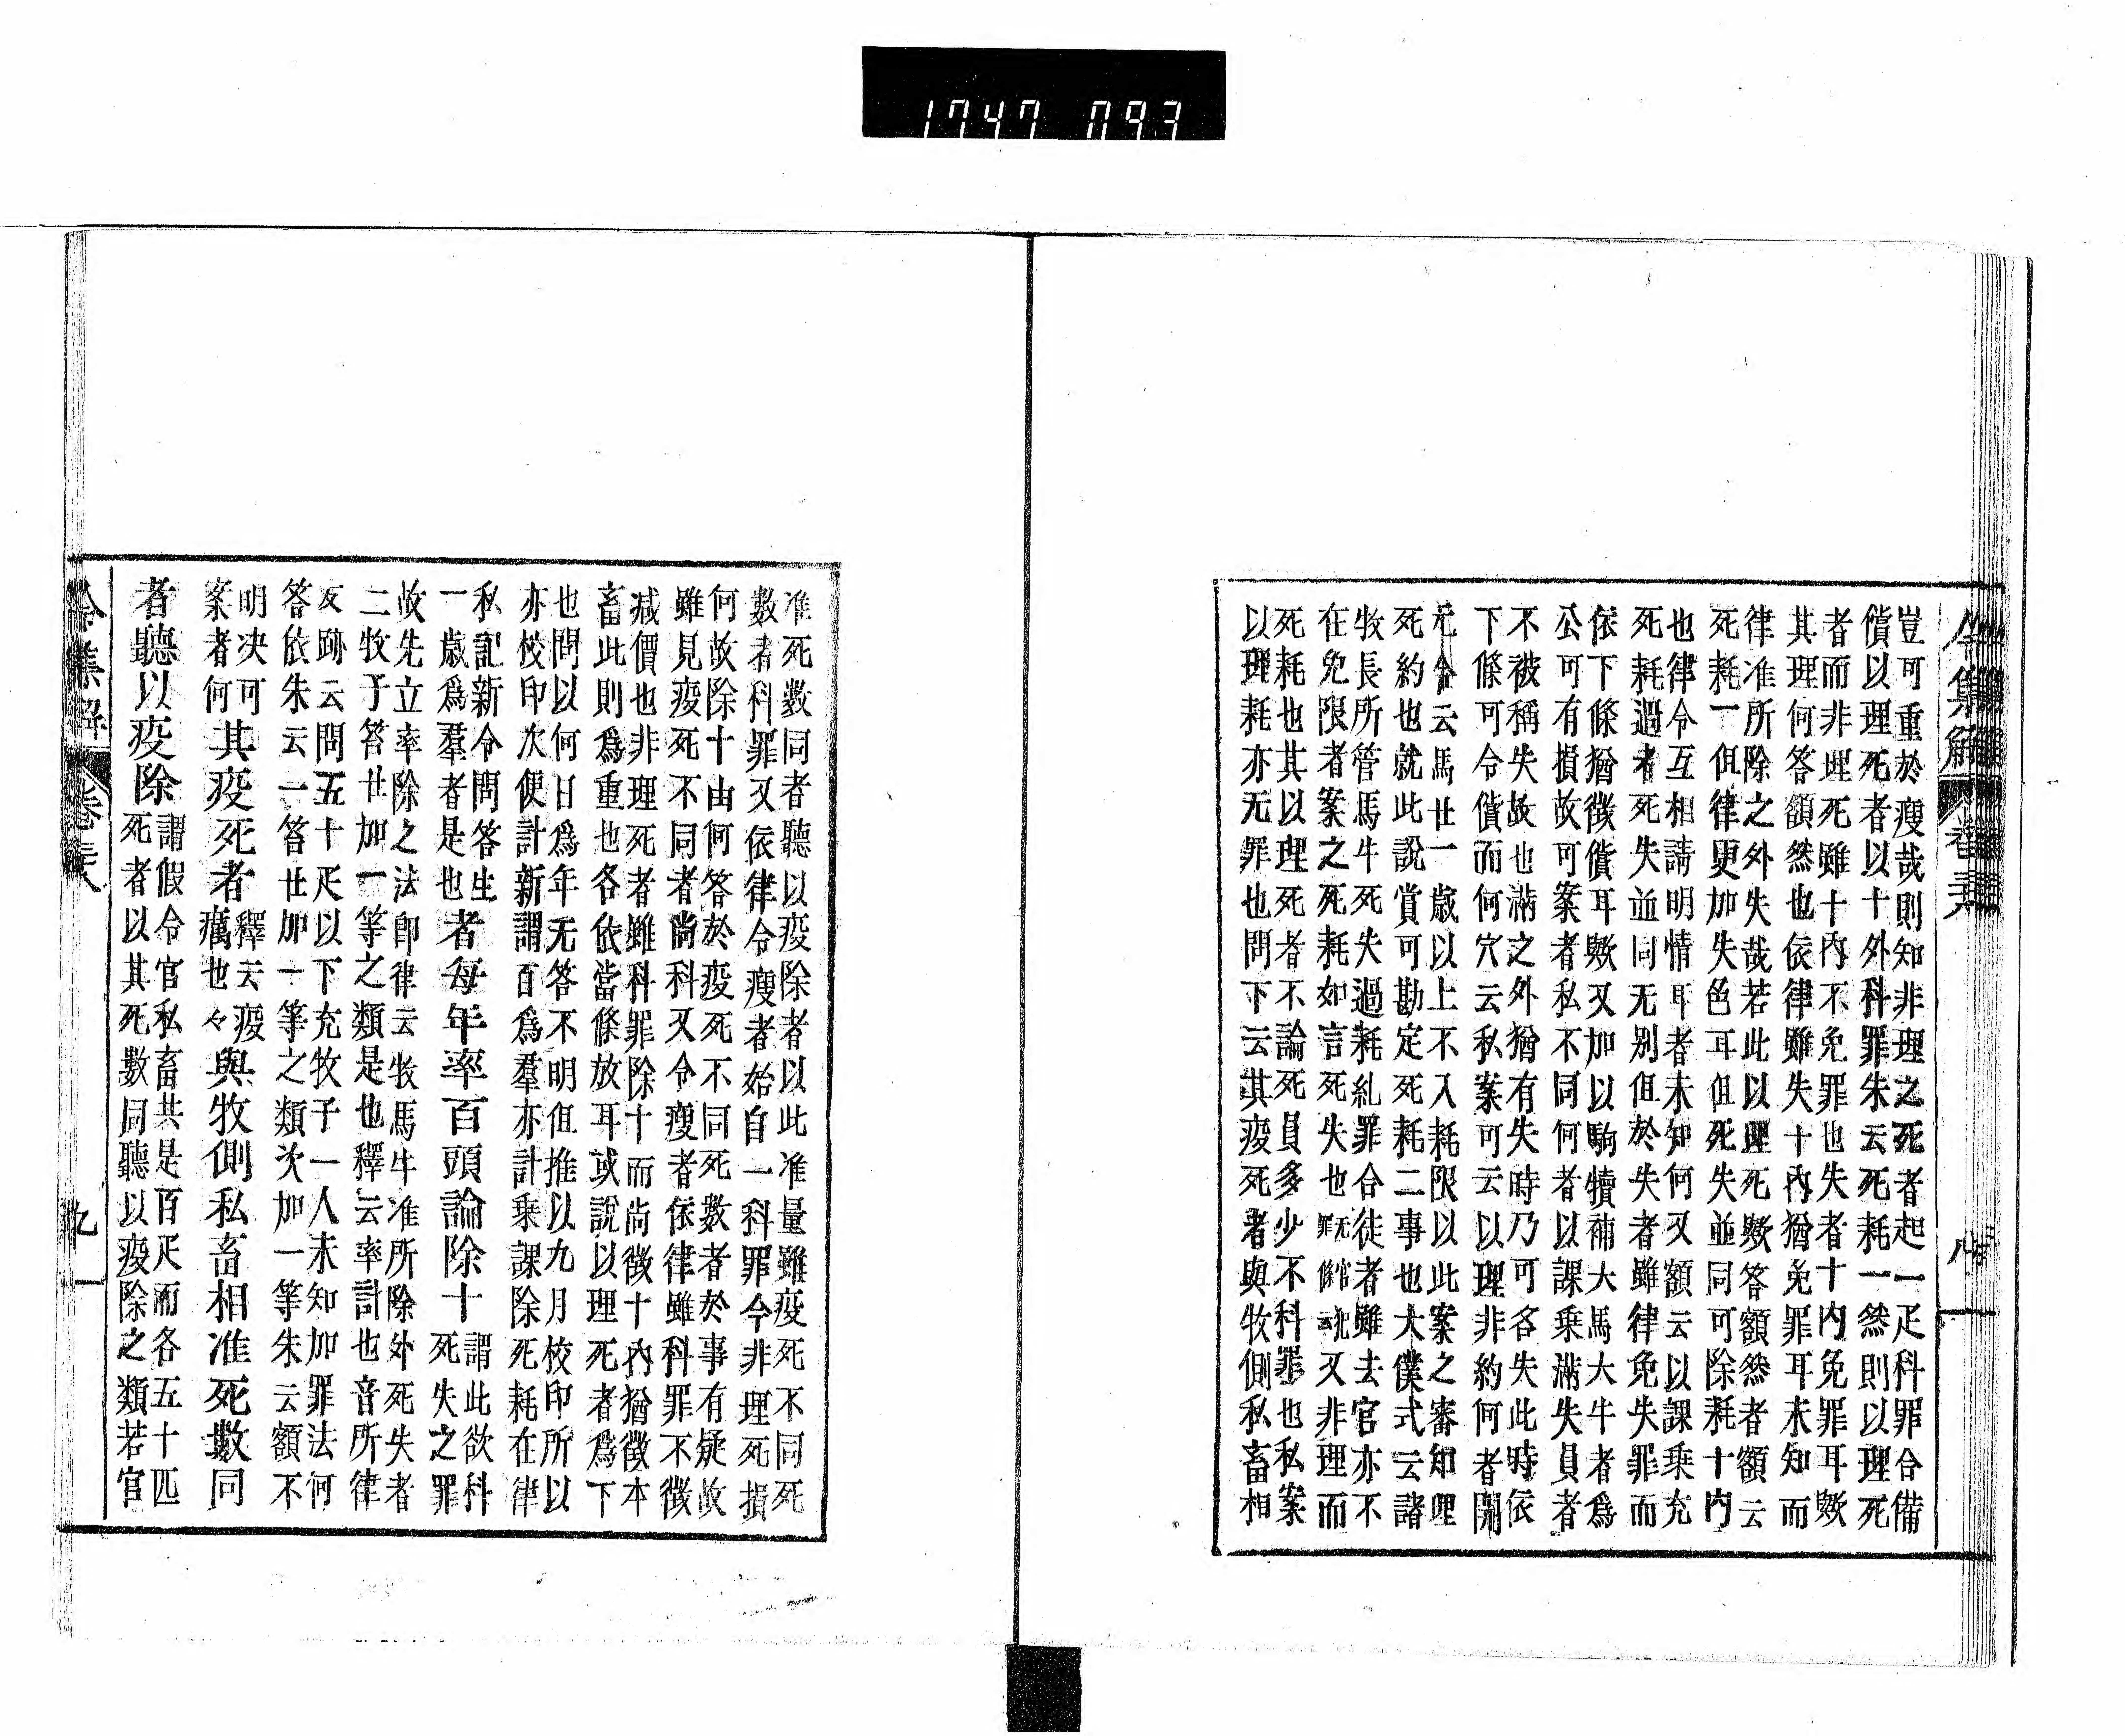 1747 093
令集解 卷三八 八
豈可重於瘦哉則知非理之死者起一疋科罪合備
償以理死者以十外科罪朱云死耗一然則以理死
者而非理死雖十內不免罪也失者十內免罪耳歟
其理何答額然也依律雖失十內猶免罪耳未知而
律准所除之外失哉若此以理死歟答額然者額云
死耗一但律更加失色耳但死失並同可除耗十内
也律令互相請明情耳者未知何又額云以課乗充
死耗過者死失並同无別但於失者雖律免失罪而
依下條猶徵償耳歟又加以駒犢補大馬大牛者爲
公可有損故可案者私不同何者以課乗滿失員者
不被稱失故也滿之外猶有失時乃可名失此時依
下條可令償而何穴云私案可云以理非約何者開
元令云馬廿一歲以上不入耗限以此案之審知理
死約也就此說賞可勘定死耗二事也大僕式云諸
牧長所管馬牛死失過耗糺罪合徒者雖去官亦不
在免限者案之死耗如言死失也又非理而
死耗也其以理死者不論死員多少不科罪也私案
以理耗亦无罪也問下云其疫死者與牧側私畜相
准死數同者聽以疫除者以此准量雖疫死不同死
數者科罪又依律令瘦者始自一科罪今非理死損
何故除十由何答於疫死不同死數者於事有疑故
雖見疫死不同者尚科又令瘦者依律雖科罪不徵
减價也非理死者雖科罪除十而尚徵十內猶徵本
畜此則爲重也各依當條放耳或說以理死者爲下
也問以何日爲年无答不明但推以九月校印所以
亦校印次便計新謂百爲羣亦計乗課除死耗在律
私記新令問答生
一歲爲羣者是也者每年率百頭論除十謂此欲科
死失之罪
故先立率除之法卽律云牧馬牛准所除外死失者
二牧子答廿加一等之類是也釋云率計也音所律
反跡云問五十疋以下充牧子一人未知加罪法何
答依朱云一笞廿加一等之類次加一等朱云額不
明决可
案者何其疫死者釋云疫
癘也々與牧側私畜相准死數同
者聽以疫除謂假令官私畜共是百疋而各五十匹
死者以其死數同聽以疫除之類若官
令集解 卷三八 九